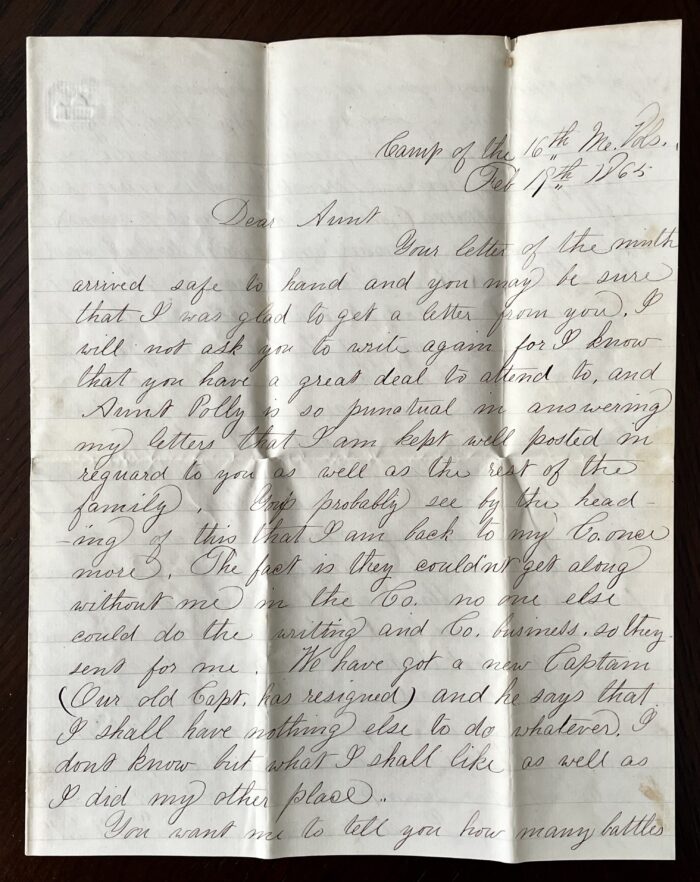 Camp of the 16th Me. Vols.
Feb 19th 1865
Dear Aunt
Your letter of the ninth
arrived safe to hand and you may be sure
that I was glad to get a letter from you. I
will not ask you to write again for I know
that you have a great deal to attend to, and
Aunt Polly is so punatual in answering
my letters that I am kept well posted in
reguard to you as well as the rest of the
family. You probably see by the head-
-ing of this that I am back to my Co. once
more. The fact is they couldn't get along
without me in the Co. no one else
could do the writing and Co. business. so they
sent for me. We have got a new Captain
(Our old Capt. has resigned) and he says that
I shall have nothing else to do whatever. I
dont know but what I shall like as well as
I did my other place..
You want me to tell you how many battles